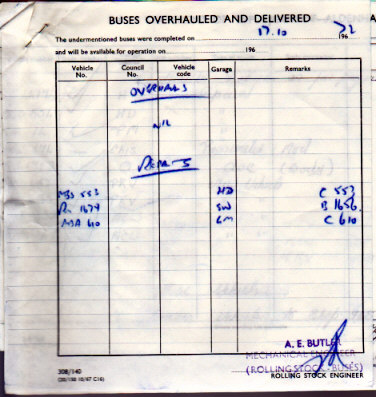 BUSES OVERHAULED AND DELIVERED
The undermentioned buses were completed on 17.10 196 72
and will be available for operation on 196
Vehicle No. Council No. Vehicle code Garage Remarks
OVERHAULS
NIL
REPAIRS
MBS 553 HD C 553
RM 1674 SW B 1656
MBA 610 GM C 610
A. E. BUTLER
MECHANICAL ENGINEER
(ROLLING STOCK-BUSES)
ROLLING STOCK ENGINEER
308/140